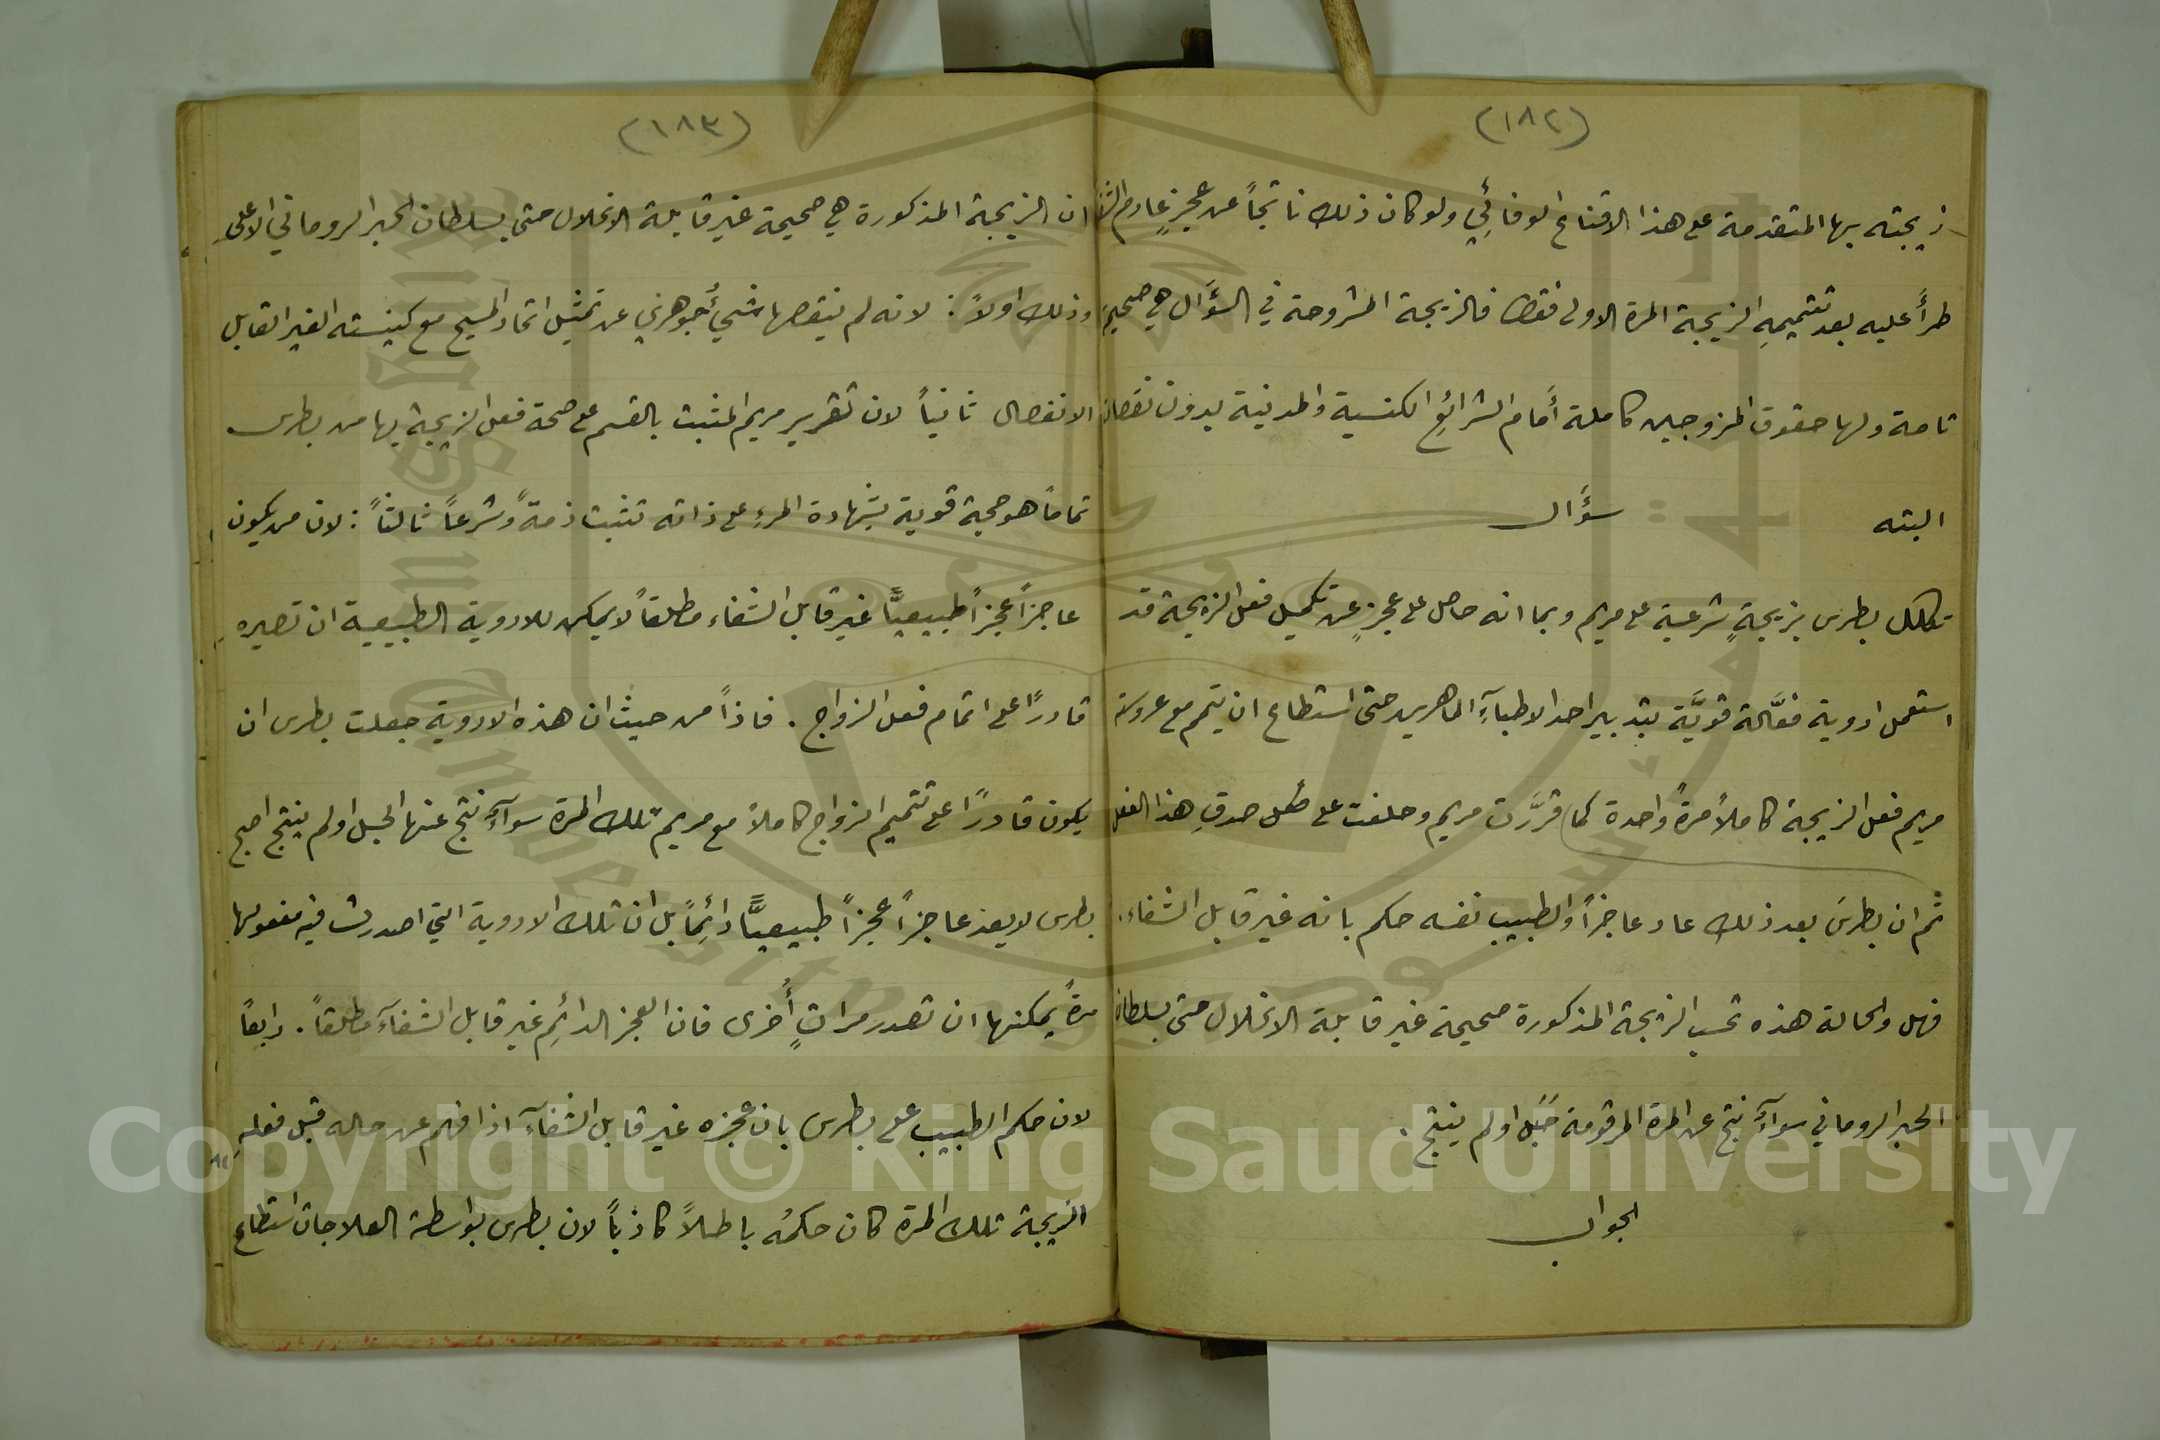 (١٨٢)
زيجته بها المتقدمة على هذا الاقناع الوفائي ولو كان ذلك ناتجاً عن عجزٍ عادم الشفا
طرأَ عليه بعد تتميمهِ الزيجة المرة الاولى فقط فالزيجة المشروحة في السؤَال هي صحيحة
تامة ولها حقوق المزوجين كاملة أَمام الشرائع الكنسية والمدنية بدون نقصان
البته سؤَال
تكلل بطرس بزيجةٍ شرعية على مريم وبما انه حاصل على عجزٍ عن تكميل فعل الزيجة قد
استعمل ادوية فعَّالة قويَّة بتدبير احد الاطبآءِ الماهرين حتى استطاع ان يتمم مع عروسته
مريم فعل الزيجة كاملاً مرةً واحدة كما قرَّرت مريم وحلفت على صدقِ هذا الفعل
ثم ان بطرسَ بعد ذلك عاد عاجزاً والطبيب نفسه حكم بانه غير قابل الشفاء.
فهل والحالة هذه تحسب الزيجة المذكورة صحيحة غير قابلة الانحلال حتى بسلطان
الحبر الروماني سوآءٌ نتج عن المرة المرقومة حَبَل او لم ينتج.
الجواب
(١٨٣)
ان الزيجة المذكورة هي صحيحة غير قابلة الانحلال حتى بسلطان الحبر الروماني الاعلى
وذلك اولاً: لانه لم ينقصها شيءٌ جوهري عن تمثيل اتحاد المسيح مع كنيسته الغير القابل
الانفصال ثانياً لان تقرير مريم المثبت بالقسم على صحة فعل الزيجة بها من بطرس
تماماً هو حجة قوية بشهادة المرءِ على ذاته تثبت ذمةً وشرعاً ثالثاً: لان من يكون
عاجزاً عجزاً طبيعيًّا غير قابل الشفاء مطلقاً لا يمكن للادوية الطبيعية ان تصيره
قادرًا على اتمام فعل الزواج. فاذاً من حيث ان هذه الادوية جعلت بطرس ان
يكون قادرًا على تتميم الزواج كاملاً مع مريم تلك المرة سوآءٌ نتج عنها الحبل او لم ينتج اصبح
بطرس لا يعد عاجزاً عجزاً طبيعيًّا دائِماً بل ان تلك الادوية التي اصدرت فيه مفعولها
مرةً يمكنها ان تصدر مراتٍ أُخرى فان العجز الدائِم غير قابل الشفآءِ مطلقاً. رابعاً
لان حكم الطبيب على بطرس بان عجزه غير قابل الشفآءِ اذا فهم عن حاله قبل فعلهِ
الزيجة تلك المرة كان حكمُه باطلاً كاذباً لان بطرس بواسطة العلاجات استطاع
Copyright © King Saud University
King Saud University